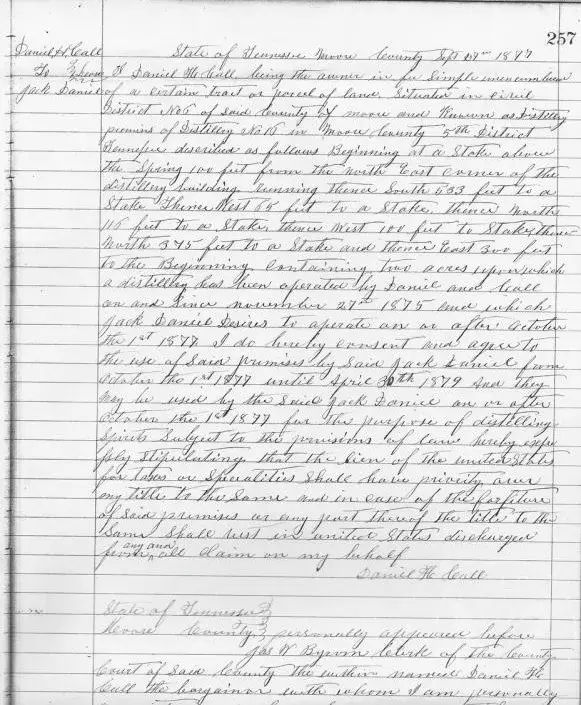 257
Daniel H. Call
To } Lease
Jack Daniel
State of Tennessee Moore County Sept 1877
I Daniel H. Call being the owner in fee simple unincumbered
of a certain tract or parcel of land situated in Civil
District No 5 of said County of Moore and Known as Distillery
premises of Distillery No 16 in Moore County 5th District
Tennessee described as follows Beginning at a Stake above
the Spring 100 feet from the North East corner of the
distillery building running thence South 533 feet to a
Stake Thence West 65 feet to a Stake, thence North
115 feet to a Stake, thence West 100 feet to Stake, thence
North 375 feet to a Stake and thence East 300 feet
to the Beginning Containing two acres upon which
a distillery has been operated by Daniel and Call
on and Since November 27th 1875 and which
Jack Daniel Desires to operate on or after October
the 1st 1877 I do hereby consent and agree to
the use of Said premises by Said Jack Daniel from
October the 1st 1877 until April 30th 1879 And they
may be used by the Said Jack Daniel on or after
October the 1st 1877 for the purpose of distilling
Spirits Subject to the provisions of law hereby expr
ssly Stipulating that the lien of the united States
for taxes or Specalities Shall have priority over
my title to the Same and in case of the forfeiture
of Said premises or any part thereof the title to the
Same Shall vest in united States discharged
from any and all Claim on my behalf
Daniel H. Call
State of Tennessee }
Moore County } personally appeared before
Jas W Byrom Clerk of the County
Court of Said County the within named Daniel H.
Call the bargainor with whom I am personally